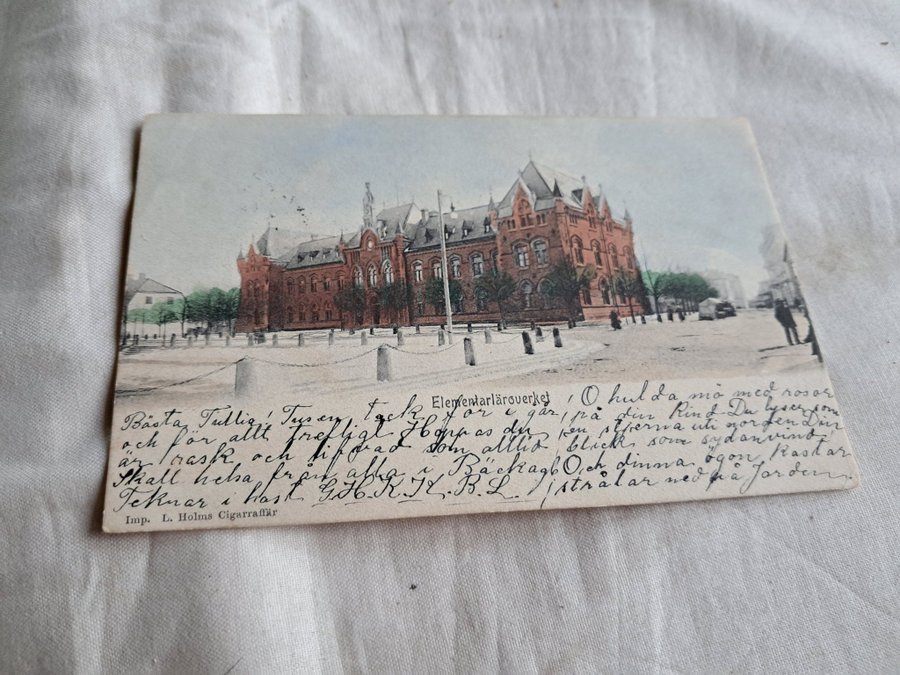 Elementarläroverket
Bästa Tullig! Tusen tack för igår
och för allt trefligt Hoppas du
är rask och uppåt som alltid
Skall helsa från alla i Backa
Teknar i hast G.H.K.K.B.L.
O hulda mö med rosor
på din kind Du lyser som
en stjerna uti norden Din
blick som sydanvind
Och dinna ögon kastar
strålar ned på Jorden
Imp. L. Holms Cigarraffär